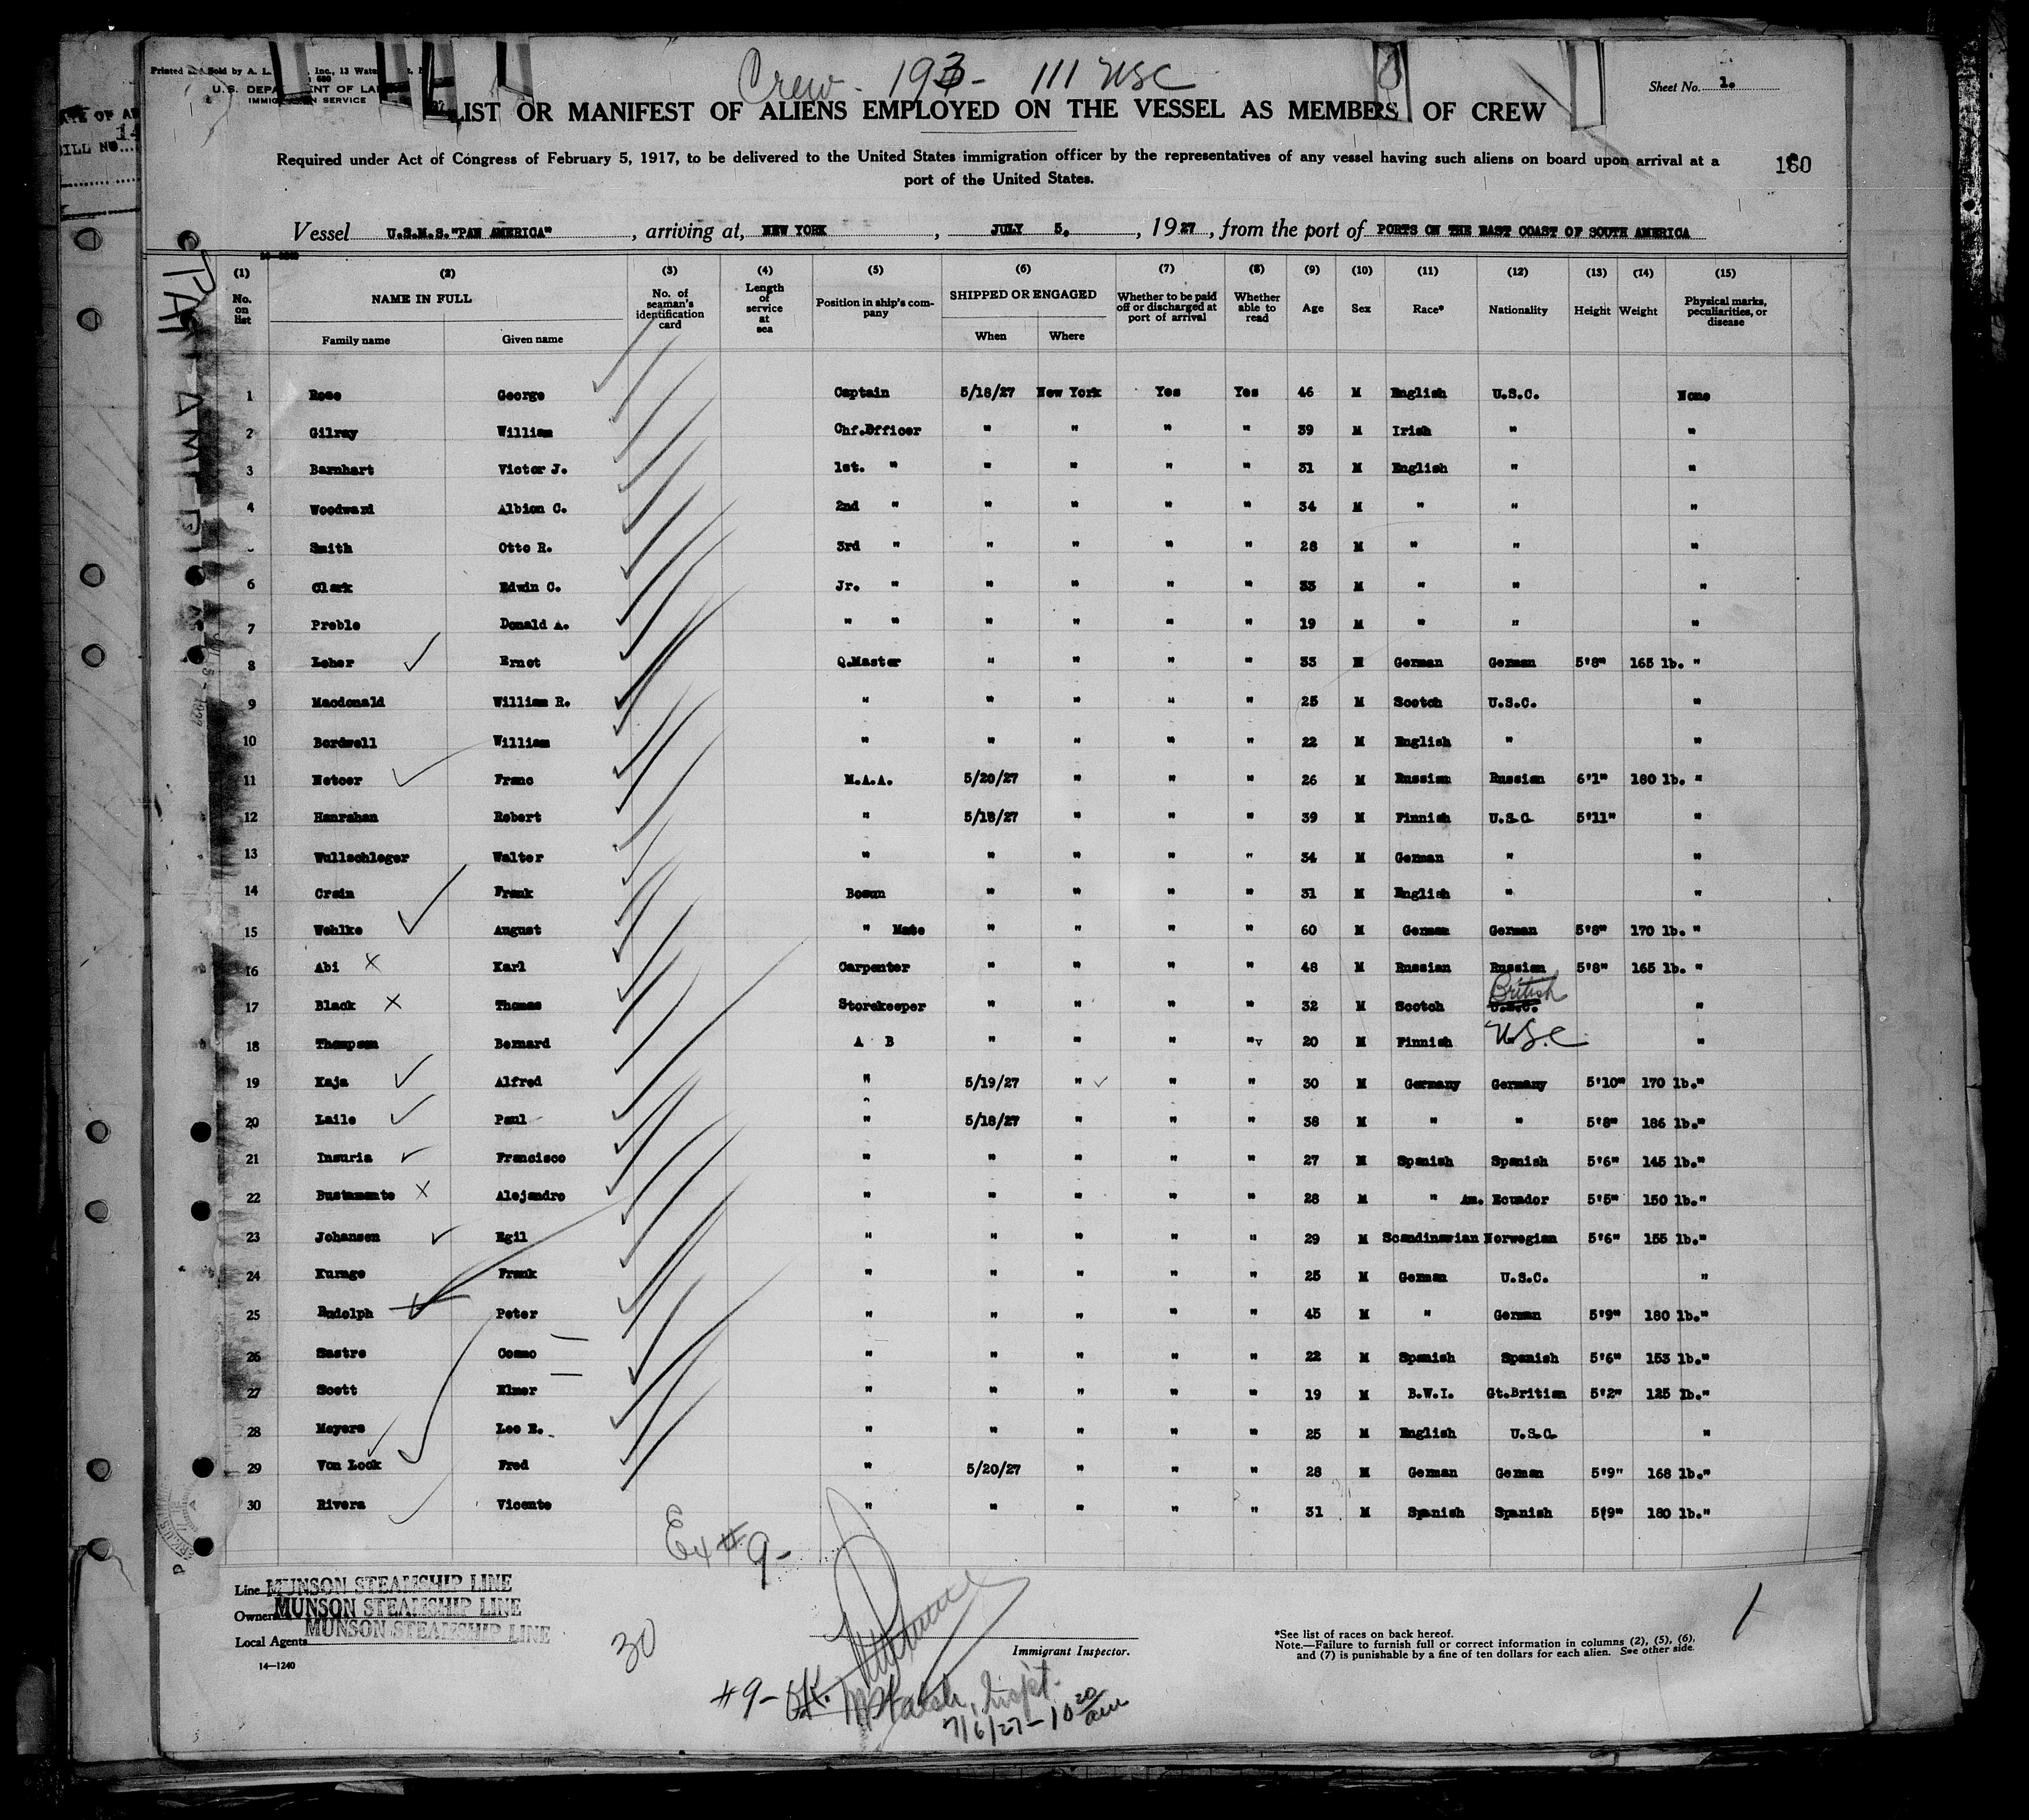 Crew - 193 - 111 USC
Printed and Sold by A. L. Inc., 13 Water
U.S. DEPARTMENT OF LABOR
IMMIGRATION SERVICE
Sheet No. 1.
LIST OR MANIFEST OF ALIENS EMPLOYED ON THE VESSEL AS MEMBERS OF CREW
Required under Act of Congress of February 5, 1917, to be delivered to the United States immigration officer by the representatives of any vessel having such aliens on board upon arrival at a
port of the United States.
160
Vessel U.S.M.S. "PAN AMERICA", arriving at, NEW YORK, JULY 5, 1927, from the port of PORTS ON THE EAST COAST OF SOUTH AMERICA
(1) (2) (3) (4) (5) (6) (7) (8) (9) (10) (11) (12) (13) (14) (15)
No. on list NAME IN FULL No. of seaman's identification card Length of service at sea Position in ship's company SHIPPED OR ENGAGED Whether to be paid off or discharged at port of arrival Whether able to read Age Sex Race* Nationality Height Weight Physical marks, peculiarities, or disease
Family name Given name When Where
1 Rose George Captain 5/18/27 New York Yes Yes 46 M English U.S.C. None
2 Gilroy William Chf.Officer " " " " 39 M Irish " "
3 Barnhart Victor J. 1st. " " " " " 31 M English " "
4 Woodward Albion C. 2nd " " " " " 34 M " " "
Smith Otto R. 3rd " " " " " 28 M " " "
6 Clark Edwin C. Jr. " " " " " 33 M " " "
7 Preble Donald A. " " " " " " 19 M " " "
8 Loher Ernst Q.Master " " " " 33 M German German 5'8" 165 lb. "
9 Macdonald William R. " " " " " 25 M Scotch U.S.C. "
10 Bordwell William " " " " " 22 M English " "
11 Netoer Franc M.A.A. 5/20/27 " " " 26 M Russian Russian 6'1" 180 lb. "
12 Hanrahan Robert " 5/18/27 " " " 39 M Finnish U.S.C. 5'11" "
13 Wullschleger Walter " " " " " 34 M German " "
14 Crain Frank Bosun " " " " 31 M English " "
15 Wohlke August " Mate " " " " 60 M German German 5'8" 170 lb. "
16 Abi Karl Carpenter " " " " 48 M Russian Russian 5'8" 165 lb. "
17 Black Thomas Storekeeper " " " " 32 M Scotch British U.S.C. "
18 Thompson Bernard A B " " " " 20 M Finnish U.S.C "
19 Kaja Alfred " 5/19/27 " " " 30 M Germany Germany 5'10" 170 lb."
20 Laile Paul " 5/18/27 " " " 38 M " " 5'8" 186 lb."
21 Insuria Francisco " " " " " 27 M Spanish Spanish 5'6" 145 lb."
22 Bustamente Alejandro " " " " " 28 M " Am. Ecuador 5'5" 150 lb."
23 Johansen Egil " " " " " 29 M Scandinavian Norwegian 5'6" 155 lb."
24 Kurage Frank " " " " " 25 M German U.S.C. "
25 Rudolph Peter " " " " " 45 M " German 5'9" 180 lb."
26 Sastre Cosmo " " " " " 22 M Spanish Spanish 5'6" 153 lb."
27 Scott Elmer " " " " " 19 M B.W.I. Gt.Britian 5'2" 125 lb."
28 Meyers Leo E. " " " " " 25 M English U.S.C. "
29 Von Look Fred " 5/20/27 " " " 28 M German German 5'9" 168 lb."
30 Rivera Vicente " " " " " 31 M Spanish Spanish 5'9" 180 lb."
Ex #9-
Line MUNSON STEAMSHIP LINE
Owners MUNSON STEAMSHIP LINE
Local Agents MUNSON STEAMSHIP LINE
14—1240
30
Immigrant Inspector.
*See list of races on back hereof.
Note.—Failure to furnish full or correct information in columns (2), (5), (6),
and (7) is punishable by a fine of ten dollars for each alien. See other side.
#9- OK. Walsh, Inspt.
7/6/27 - 10 20 am